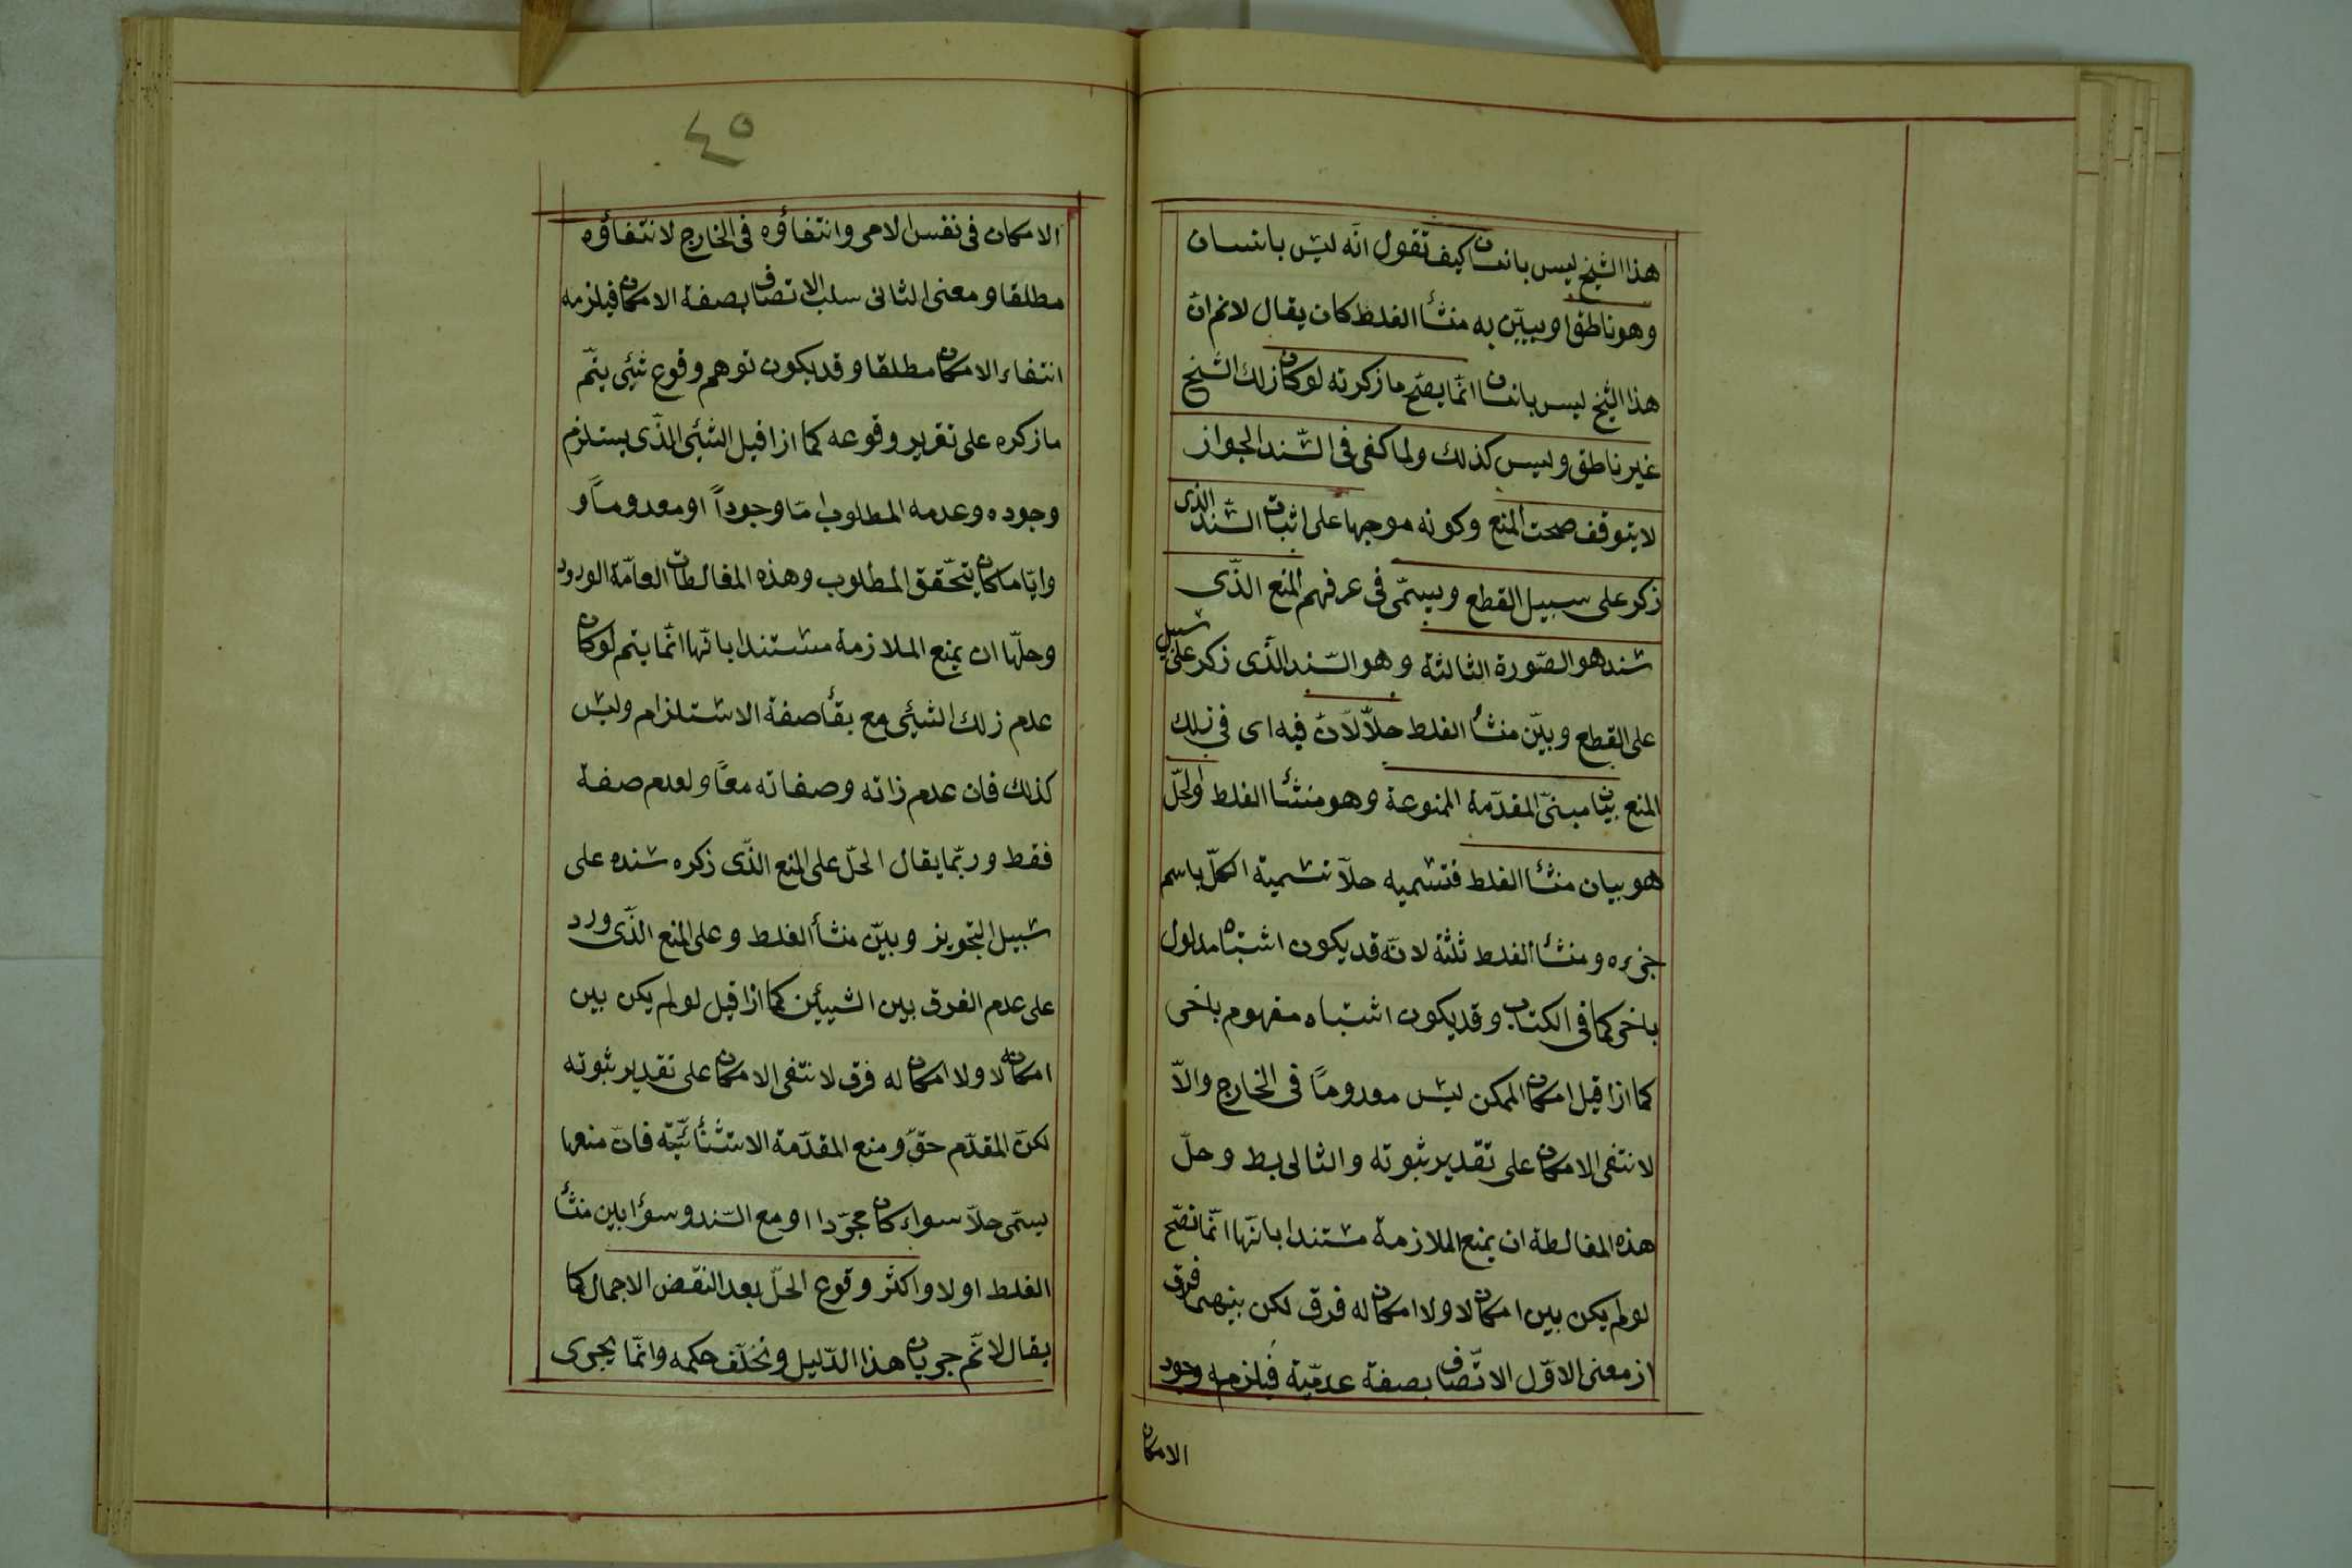 هذا الشيخ ليس بانسان كيف تقول انّه ليس بانسان
وهو ناطق او يبيّن به منشأ الغلط كان يقال لانم انّ
هذا الشيخ ليس بانسان انّما يصّح ما زكرته لو كان زلك الشيخ
غير ناطق وليس كذلك ولما كفى فى السّند الجواز
لا يتوقف صحت المنع وكونه موجها على اثبات السّند الذى
زكر على سبيل القطع ويسمّى فى عرفهم المنع الذّى
سنده هو الصّورة الثالثة وهو السّند الذّى زكر على سبيل
على القطع وبيّن منشأ الغلط حلاّ لانّ فيه اى فى زلك
المنع بيّنا مبنىّ المقدّمة الممنوعة وهو منشأ الغلط والحلّ
هو بيان منشأ الغلط فتسميه حلاّ تسمية الكلّ باسم
جزءه ومنشأ الغلط ثلثة لانّه قد يكون اشتباه مدلول
باخر كما فى الكتاب وقد يكون اشتباه مفهوم باخر
كما ازا قيل امكان الممكن ليس معدوماً فى الخارج والاّ
لانتفى الامكان على تقدير ثبوته والتالى بط وحلّ
هذه المغالطة ان يمنع الملازمة مستندا بانّها انّما تصّح
لو لم يكن بين امكانه لا ولا امكان له فرق لكن بينهما فرق
از معنى الاوّل الاتّصاف بصفة عدميّة فيلزمه وجود
الامكان
٤٥
الامكان فى نفس الامر وانتفاؤه فى الخارج لانتفاؤه
مطلقا ومعنى الثانى سلب الاتصاف بصفة الامكان فيلزمه
انتفاء الامكان مطلقا وقد يكون توهم وقوع شئى يتمّ
ما زكره على تقرير وقوعه كما ازا قيل الشئى الذّى يستلزم
وجوده وعدمه المطلوب امّا وجوداً او معدوماً و
وايّاما كان يتحّقق المطلوب وهذه المغالطات العامّة الورود
وحلّها ان يمنع الملازمة مستندا بانّها انّما يتم لو كان
عدم زلك الشيئى مع بقأ صفة الاستلزام وليس
كذلك فان عدم زاته وصفاته معاً ولعدم صفة
فقط وربّما يقال الحلّ على المنع الذّى زكره سنده على
سبيل التجويز وبيّن منشأ الغلط وعلى المنع الذّى ورد
على عدم الفرق بين الشيئين كما ازا قيل لو لم يكن بين
امكانه لا ولا امكان له فرق لانتفى الامكان على تقدير ثبوته
لكنّ المقدّم حقّ ومنع المقدّمة الاستثنائيّة فانّ منعها
يسمّى حلاّ سواء كان مجرّدا او مع السّند وسؤا بين منشأ
الغلط اولا واكثر وقوع الحلّ بعد النقض الاجمال كما
يقال لانّم جريان هذا الدّليل وتخلّف حكمه وانّما يجرى